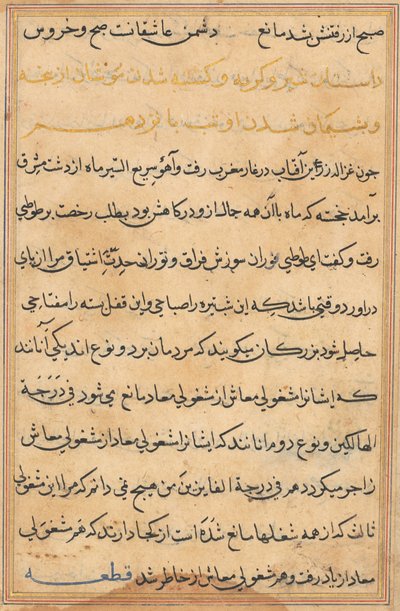 صبح از رفتنش شد مانع دشمن عاشقانت صبح و خروس
داستان شیر و گربه و کشته شدن موشان از بچه
و پشیمان شدن او شب پانزدهم
چون غزاله زرین آفتاب در غار مغرب رفت و آهو سریع السیر ماه از دشت مشرق
برآمد خجسته که ماه با آن همه جمال ازو در کاهش بود بطلب رخصت بر طوطی
رفت و کفت ای طوطی فوران سوزش فراق و ثوران حدت اشتیاق مرا از پای
در اورد وقتی باشد که این شب تیره را صباحی و این قفل بسته را مفتاحی
حاصل شود بزرکان میکویند که مردمان بر دو نوع اند یکی آنانند
که ایشانرا مشغولی معاش از مشغولی معاد مانع می شود فی دَرَجَة
الهالکین و نوع دوم انانند که ایشانرا مشغولی معاد از مشغولی معاش
زاجر میکردد هم فی درجة الفایزین من هیچ نمی دانم که مرا این مشغولی
ثالث که از همه شغلها مانع شده است از کجا دارند که هم مشغولی
معاد از یاد رفت و هم مشغولی معاش از خاطر شد قطعه